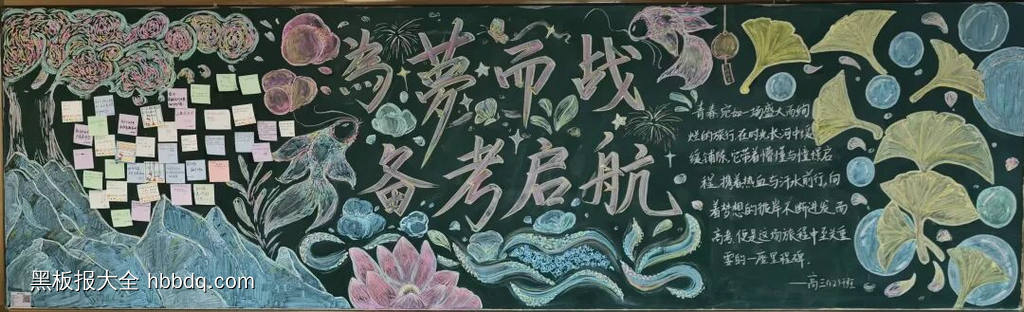 為夢而战
备考启航
青春,它如一场盛大而绚
烂的旅行,在时光长河中徐
缓铺陈,它带着懵懂与憧憬启
程,携着热血与汗水前行,向
着梦想的彼岸不断进发,而
高考,便是这场旅程中至关重
要的一座里程碑.
——高三(12)班
黑板报大全 hbbdq.com